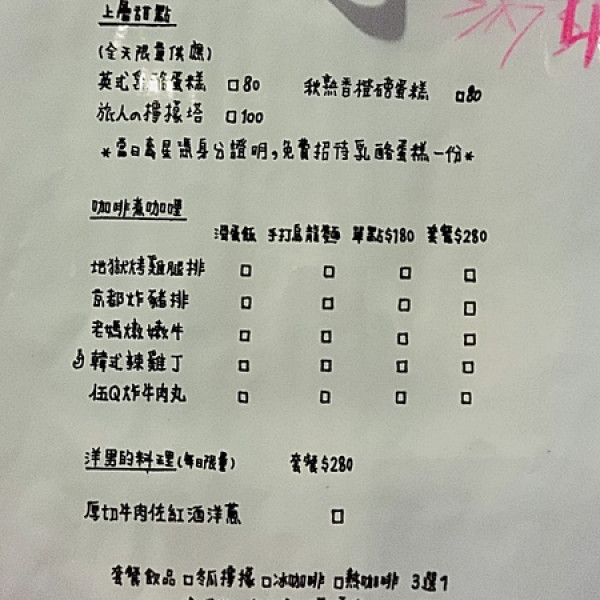 上層甜點
(全天限量供應)
英式乳酪蛋糕 □80 秋熟香橙磅蛋糕 □80
旅人の檸檬塔 □100
*當日壽星憑身分證明,免費招待乳酪蛋糕一份*
咖啡煮咖哩
滑蛋飯 手打烏龍麵 單點$180 套餐$280
地獄烤雞腿排 □ □ □ □
京都炸豬排 □ □ □ □
老媽燉嫩牛 □ □ □ □
韓式辣雞丁 □ □ □ □
伍Q炸牛肉丸 □ □ □ □
洋男的料理(每日限量) 套餐$280
厚切牛肉佐紅酒洋蔥 □
套餐飲品 □冬瓜檸檬 □冰咖啡 □熱咖啡 3選1